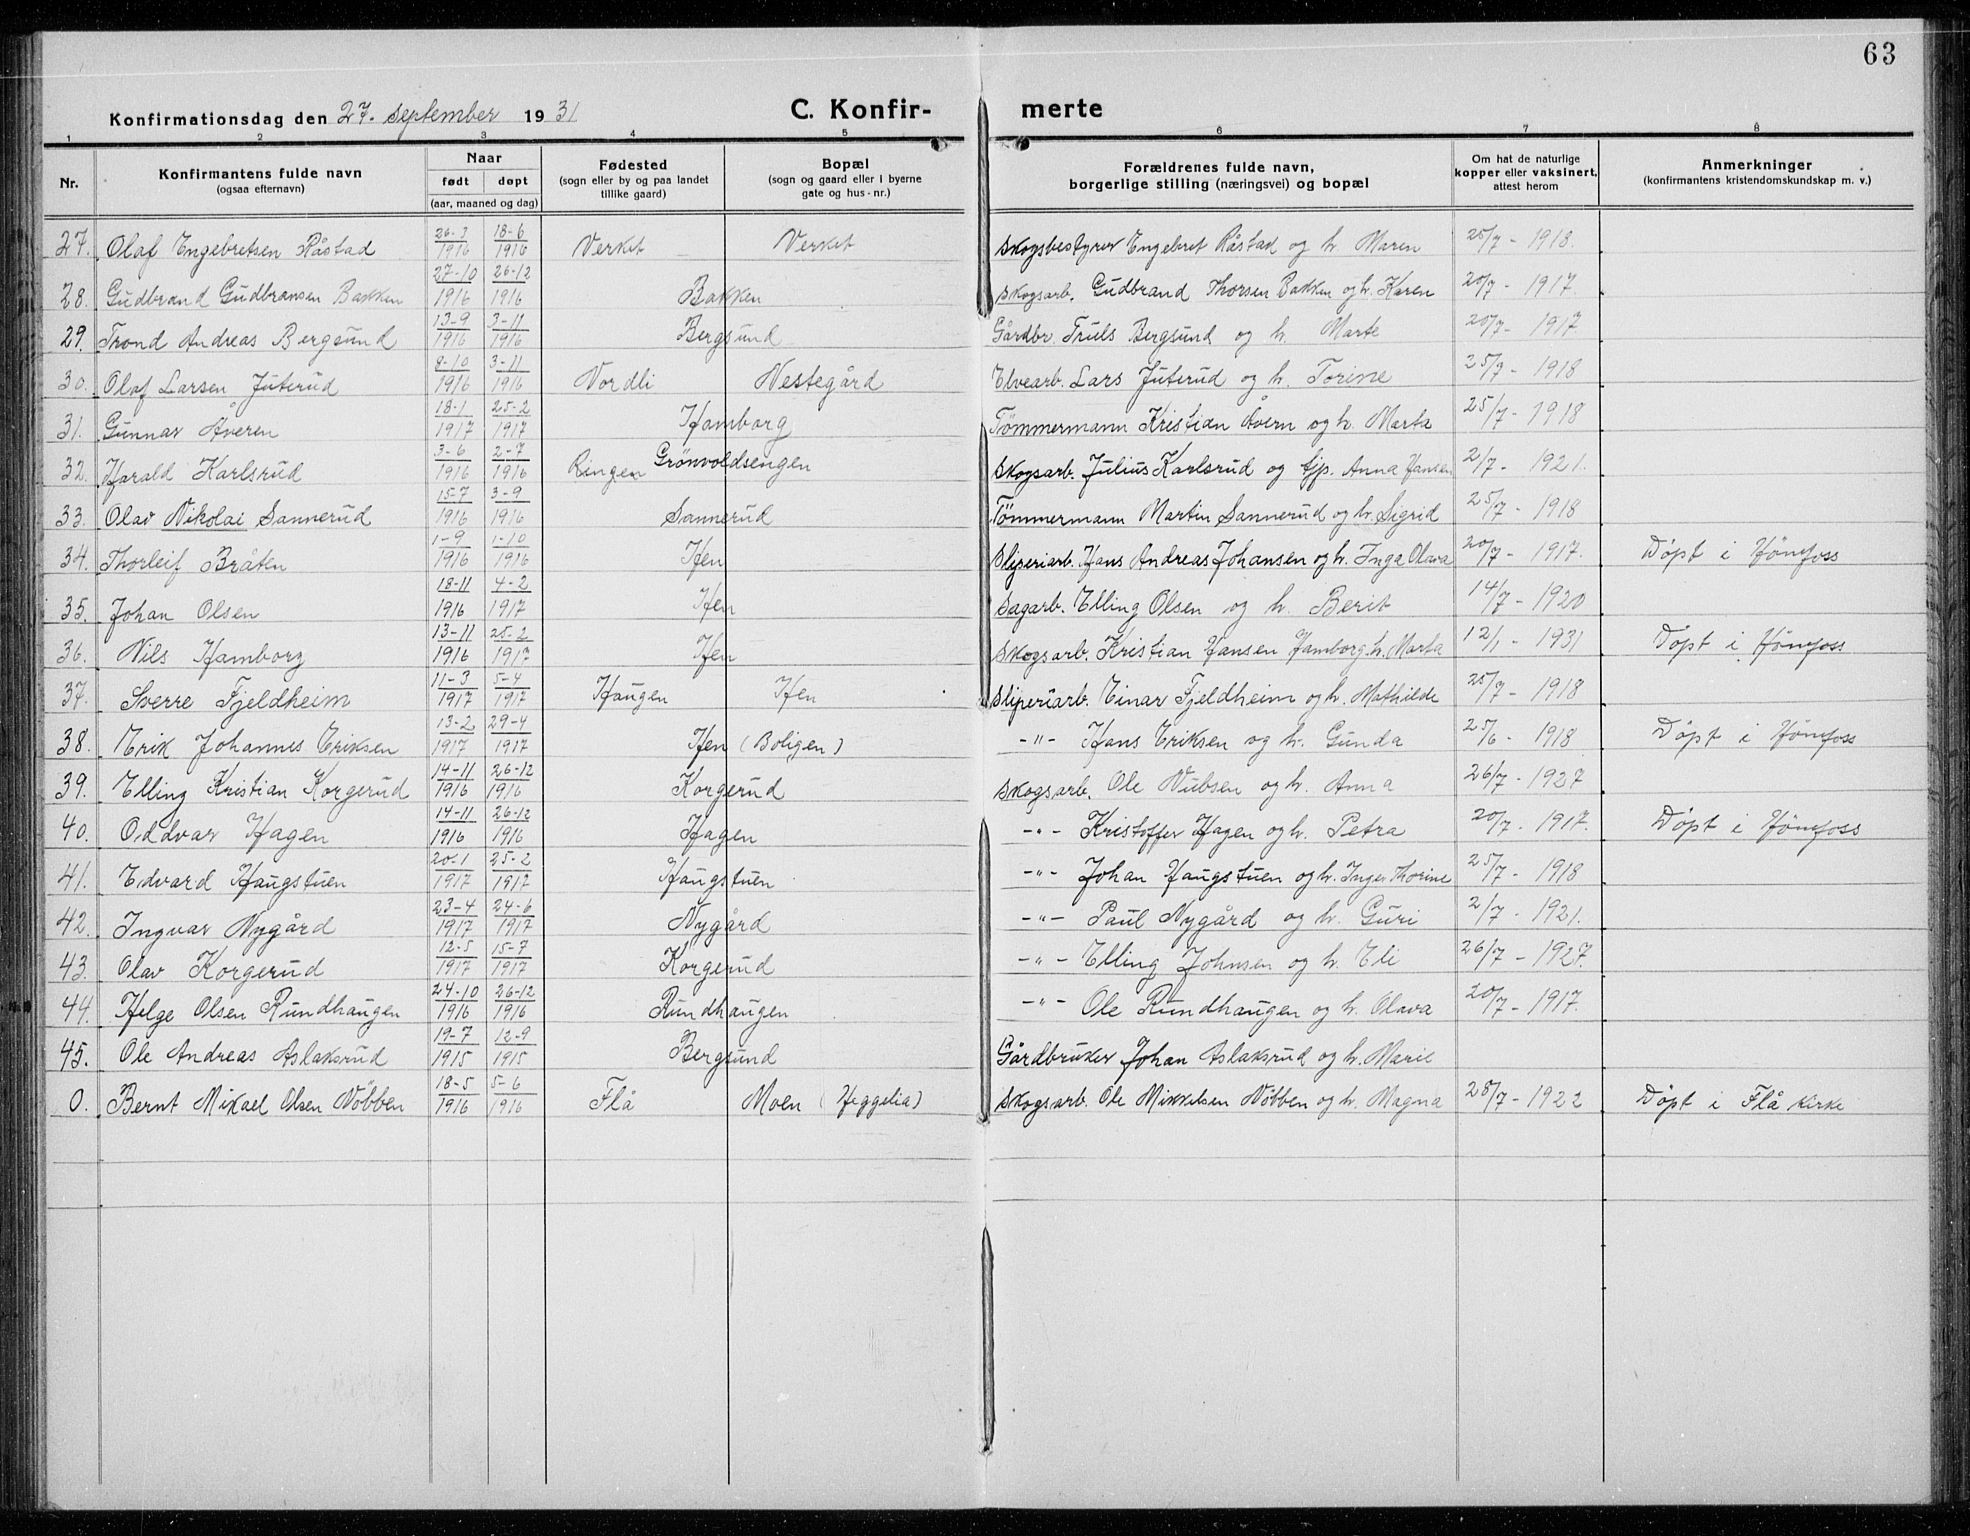 63
Konfirmationsdag den 27. september 1931 C. Konfirmerte
1 2 3 4 5 6 7 8
Nr. Konfirmantens fulde navn (ogsaa efternavn) Naar født døpt (aar, maaned og dag) Fødested (sogn eller by og paa landet tillike gaard) Bopæl (sogn og gaard eller i byerne gate og hus-nr.) Forældrenes fulde navn, borgerlige stilling (næringsvei) og bopæl Om hat de naturlige kopper eller vaksinert, attest herom Anmerkninger (konfirmantens kristendomskundskap m. v.)
27. Olaf Engebretsen Råstad 26-3 1916 18-6 1916 Verket Verket Skogsbestyrer Engebret Råstad og h. Maren 25/7 - 1918.
28. Gudbrand Gudbransen Bakken 27-10 1916 26-12 1916 Bakken Skogsarb. Gudbrand Thorsen Bakken og h. Karen 20/7 - 1917
29. Trond Andreas Bergsund 13-9 1916 3-11 1916 Bergsund Gårdbr. Truls Bergsund og h. Marte 20/7 - 1917
30. Olaf Larsen Juterud 8-10 1916 3-11 1916 Vordli Nestegård Elvearb. Lars Juterud og h. Torine 25/7 - 1918
31. Gunnar Åveren 18-1 1917 25-2 1917 Hamborg Tömmermann Kristian Åvern og h. Marta 25/7 - 1918
32. Harald Karlsrud 3-6 1916 2-7 1916 Ringen Grönvoldsengen Skogsarb. Julius Karlsrud og fjp. Anna Hansen 2/7 - 1921.
33. Olav Nikolai Sannerud 15-7 1916 3-9 1916 Sannerud Tömmermann Martin Sannerud og h. Sigrid 25/7 - 1918
34. Thorleif Bråten 1-9 1916 1-10 1916 Hen Sliperiarb. Hans Andreas Johansen og h. Inga Olava 20/7 - 1917. Döpt i Hönefoss
35. Johan Olsen 18-11 1916 4-2 1917 Hen Sagarb. Elling Olsen og h. Berit 14/7 - 1920
36. Nils Hamborg 13-11 1916 25-2 1917 Hen Skogsarb. Kristian Hansen Hamborg h. Marta 12/1 - 1931 Döpt i Hönefoss
37. Sverre Fjeldheim 11-3 1917 5-4 1917 Haugen Hen Sliperiarb. Einar Fjeldheim og h. Mathilde 25/7 - 1918
38. Erik Johannes Eriksen 13-2 1917 29-4 1917 Hen (Boligen) -"- Hans Eriksen og h. Gunda 25/6 - 1918 Döpt i Hönefoss
39. Elling Kristian Korgerud 14-11 1916 26-12 1916 Korgerud Skogsarb. Ole Nubsen og h. Anna 26/7 - 1927
40. Oddvar Hagen 14-11 1916 26-12 1916 Hagen -"- Kristoffer Hagen og h. Petra 20/7 - 1917. Döpt i Hönefoss
41. Edvard Haugstuen 20-1 1917 25-2 1917 Haugstuen -"- Johan Haugstuen og h. Inger Thorine 25/7 - 1918
42. Ingvar Nygård 23-4 1917 24-6 1917 Nygård -"- Paul Nygård og h. Guri 2/7 - 1921.
43. Olav Korgerud 12-5 1917 15-7 1917 Korgerud -"- Elling Johnsen og h. Eli 26/7 - 1927.
44. Helge Olsen Rundhaugen 24-10 1916 26-12 1916 Rundhaugen -"- Ole Rundhaugen og h. Olava 20/7 - 1917.
45. Ole Andreas Aslaksrud 19-7 1915 12-9 1915 Bergsund Gårdbruker Johan Aslaksrud og h. Marie
0. Bernt Mikael Olsen Nöbben 18-5 1916 5-6 1916 Flå Moen (Heggelia) Skogsarb. Ole Mikkelsen Nöbben og h. Magna 28/7 - 1922 Döpt i Flå kirke